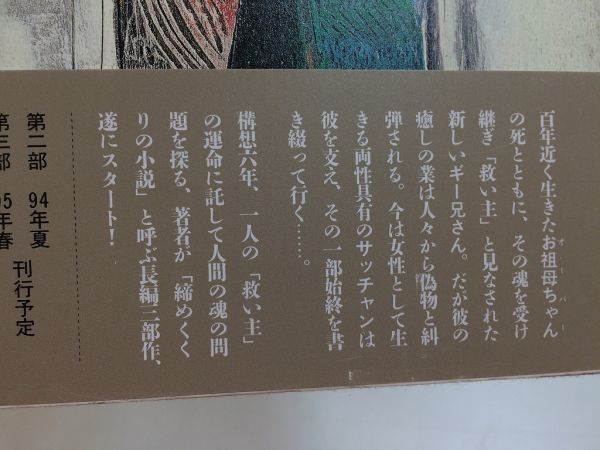 百年近く生きたお祖母ちゃん
オーバー
の死とともに、その魂を受け
継ぎ「救い主」と見なされた
新しいギー兄さん。だが彼の
癒しの業は人々から偽物と糾
弾される。今は女性として生
きる両性具有のサッチャンは
彼を支え、その一部始終を書
き綴って行く……。
構想六年、一人の「救い主」
の運命に託して人間の魂の問
題を探る、著者が「締めくく
りの小説」と呼ぶ長編三部作、
遂にスタート！
第二部 94年夏
第三部 95年春
刊行予定